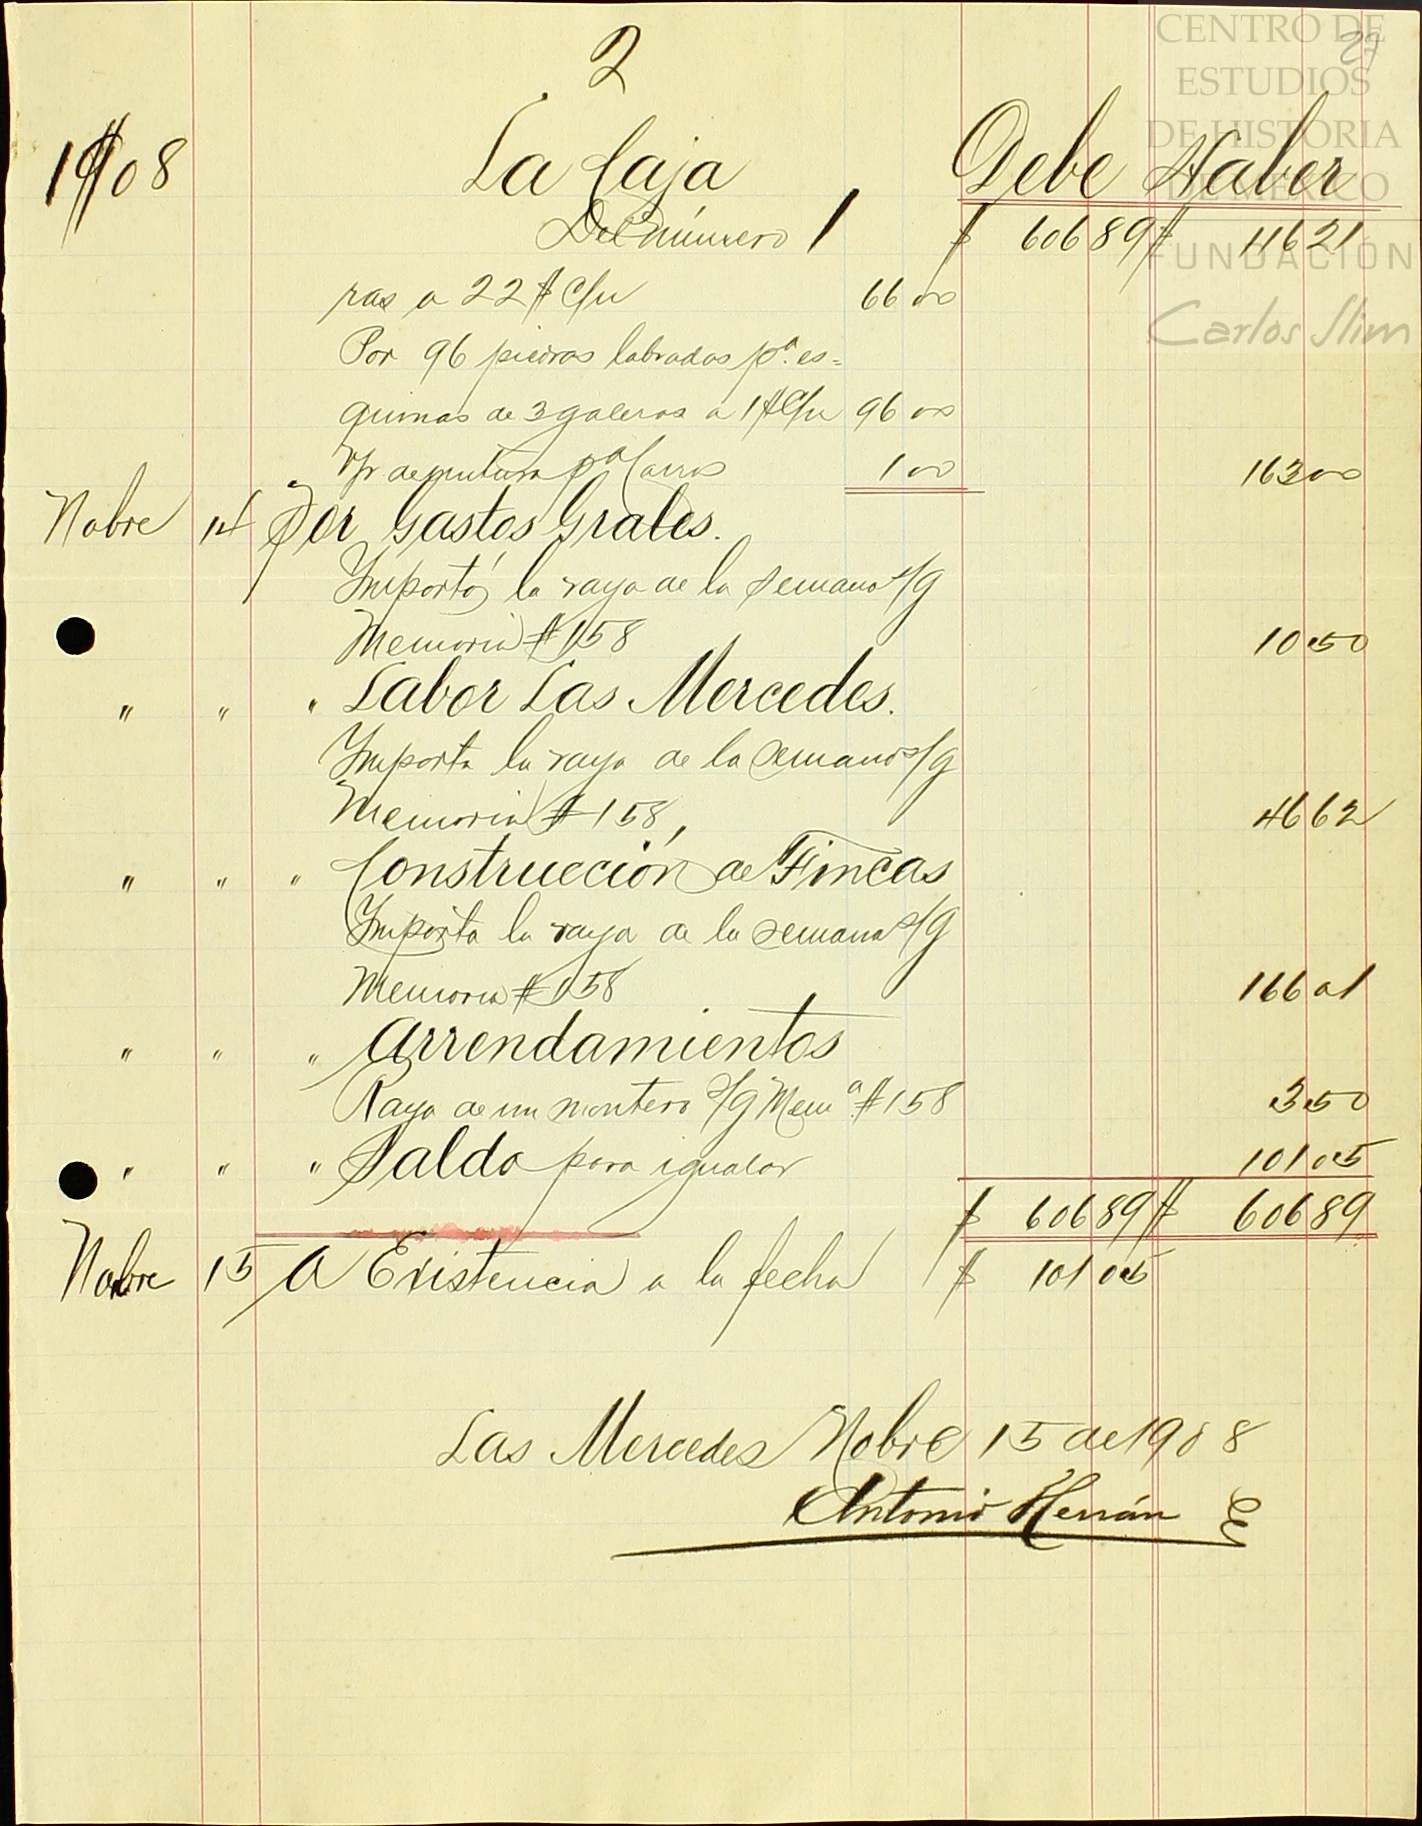 2
27
CENTRO DE
ESTUDIOS
DE HISTORIA
DE MÉXICO
FUNDACIÓN
Carlos Slim
1908 La Caja Debe Haber
Del número 1 $ 606 89 $ 116 21
ras a 22 $ c/u 66 00
Por 96 piedras labradas pª. es=
quinas de 3 galeras a 1 $ c/u 96 00
pª Carros 1 00 163 00
Nobre 14 Por Gastos Grales.
Importó la raya de la semana s/g
Memoria # 158 10 50
" " " Labor Las Mercedes.
Importa la raya de la semana s/g
Memoria # 158, 46 62
" " " Construcción de Fincas
Importa la raya de la semana s/g
Memoria # 158 166 01
" " " Arrendamientos
Raya de un montero s/g Memª. # 158 3 50
" " " Saldo para igualar 101 05
$ 606 89 $ 606 89
Nobre 15 A Existencia a la fecha $ 101 05
Las Mercedes Nobre 15 de 1908
Antonio Herrán